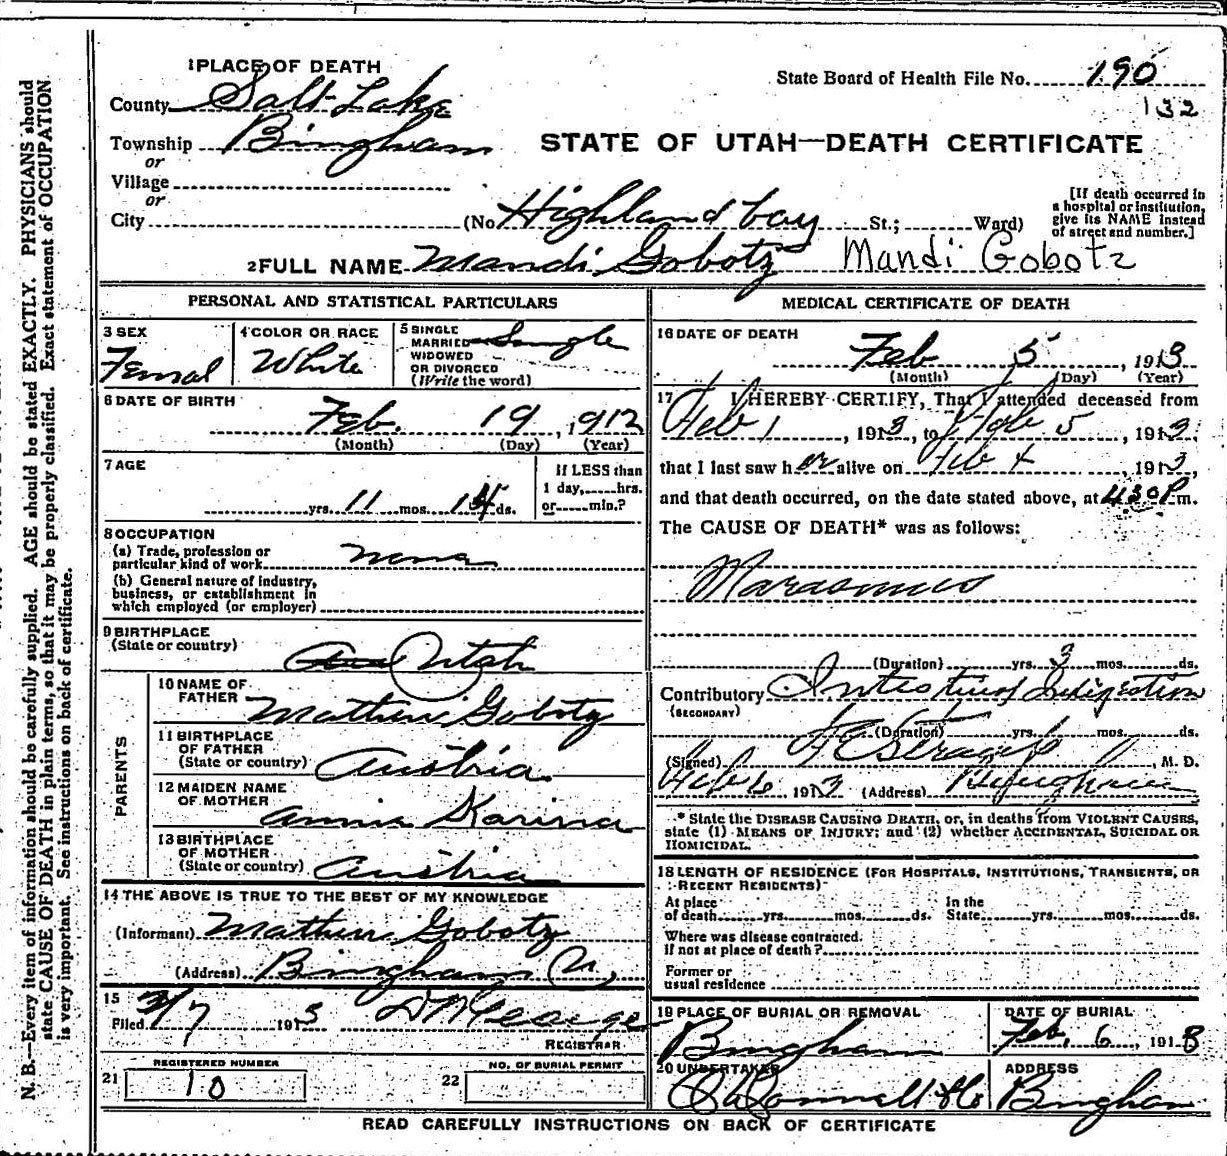 1 PLACE OF DEATH
State Board of Health File No. 190
132
County Salt Lake
STATE OF UTAH—DEATH CERTIFICATE
Township Bingham
or
Village
or
City (No Highland boy St.; Ward)
[If death occurred in a hospital or institution, give its NAME instead of street and number.]
2 FULL NAME Mandi Gobotz Mandi Gobotz
PERSONAL AND STATISTICAL PARTICULARS
3 SEX
Femal
4 COLOR OR RACE
White
5 SINGLE
MARRIED
WIDOWED
OR DIVORCED
(Write the word)
Single
6 DATE OF BIRTH
Feb. 19, 1912
(Month) (Day) (Year)
7 AGE
yrs. 11 mos. 14 ds.
If LESS than
1 day, hrs.
or min.?
8 OCCUPATION
(a) Trade, profession or
particular kind of work none
(b) General nature of industry,
business, or establishment in
which employed (or employer)
9 BIRTHPLACE
(State or country) Utah
PARENTS
10 NAME OF
FATHER Mathew Gobotz
11 BIRTHPLACE
OF FATHER
(State or country) Austria
12 MAIDEN NAME
OF MOTHER Annie Karina
13 BIRTHPLACE
OF MOTHER
(State or country) Austria
14 THE ABOVE IS TRUE TO THE BEST OF MY KNOWLEDGE
(Informant) Mathew Gobotz
(Address) Bingham U,
15
Filed 3/7 1913
REGISTRAR
REGISTERED NUMBER
21 10
NO. OF BURIAL PERMIT
22
MEDICAL CERTIFICATE OF DEATH
16 DATE OF DEATH
Feb 5, 1913
(Month) (Day) (Year)
17 I HEREBY CERTIFY, That I attended deceased from
Feb 1, 1913, to Feb 5, 1913,
that I last saw her alive on Feb 4, 1913,
and that death occurred, on the date stated above, at 4:30 P m.
The CAUSE OF DEATH* was as follows:
Marasmus
(Duration) yrs. 3 mos. ds.
Contributory Intestinal Indigestion
(SECONDARY)
(Duration) yrs. mos. ds.
(Signed) M. D.
Feb 6, 1913 (Address) Bingham
* State the DISEASE CAUSING DEATH, or, in deaths from VIOLENT CAUSES,
state (1) MEANS OF INJURY; and (2) whether ACCIDENTAL, SUICIDAL OR
HOMICIDAL.
18 LENGTH OF RESIDENCE (FOR HOSPITALS, INSTITUTIONS, TRANSIENTS, OR
RECENT RESIDENTS)
At place
of death yrs. mos. ds.
In the
State yrs. mos. ds.
Where was disease contracted.
if not at place of death?
Former or
usual residence
19 PLACE OF BURIAL OR REMOVAL
Bingham
DATE OF BURIAL
Feb, 6, 1918
20 UNDERTAKER
O'Donnell & Co
ADDRESS
Bingham
READ CAREFULLY INSTRUCTIONS ON BACK OF CERTIFICATE
N. B.—Every item of information should be carefully supplied. AGE should be stated EXACTLY. PHYSICIANS should
state CAUSE OF DEATH in plain terms, so that it may be properly classified. Exact statement of OCCUPATION
is very important. See instructions on back of certificate.